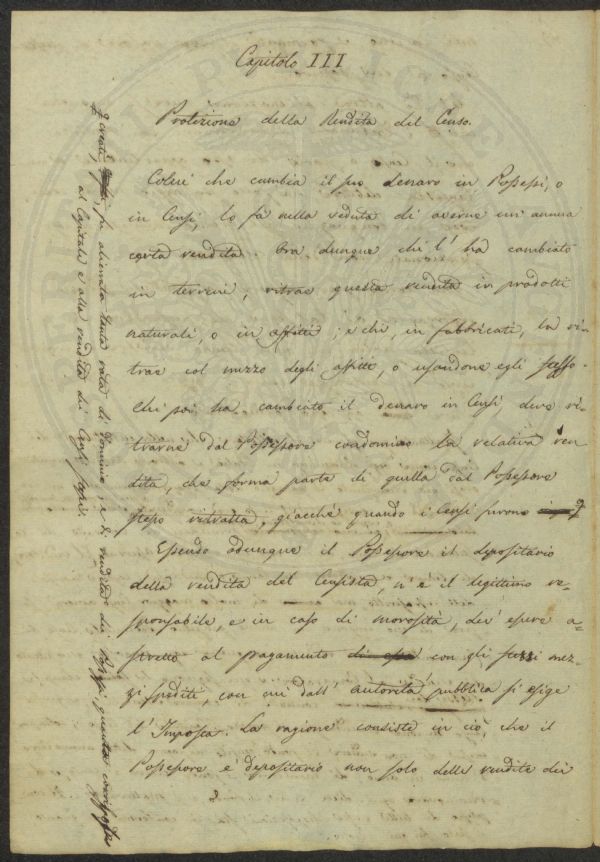 Capitolo III
Protezione della Rendita del Censo.
Colui che cambia il suo denaro in Possessi, o
in Censi, lo fà nella veduta di averne un' annua
certa rendita. Ora dunque chi l' ha cambiato
in terreni, ritrae questa rendita in prodotti
naturali, o in affitti; e chi, in fabbricati, la ri-
trae col mezzo degli affitti, o usandone egli stesso.
Chi poi ha cambiato il denaro in Censi, deve ri-
trarne dal Possessore condomino la relativa ren
dita, che forma parte di quella dal Possessore
stesso ritratta, giacchè quando i Censi furono
Essendo adunque il Possessore il depositario
della rendita del Censista, n' è il legittimo re-
sponsabile, e in caso di morosità, dev' essere a-
stretto al pagamento di essa con gli stessi mez-
zi spediti, con cui dall' autorità pubblica si esige
l' Imposta. La ragione consiste in ciò, che il
Possessore è depositario non solo delle rendite dei
creati, fu alienata tanta rata di dominio, e di rendita dei Possessi, quanta corrisponde
al Capitale e alla rendita di Censi stessi.